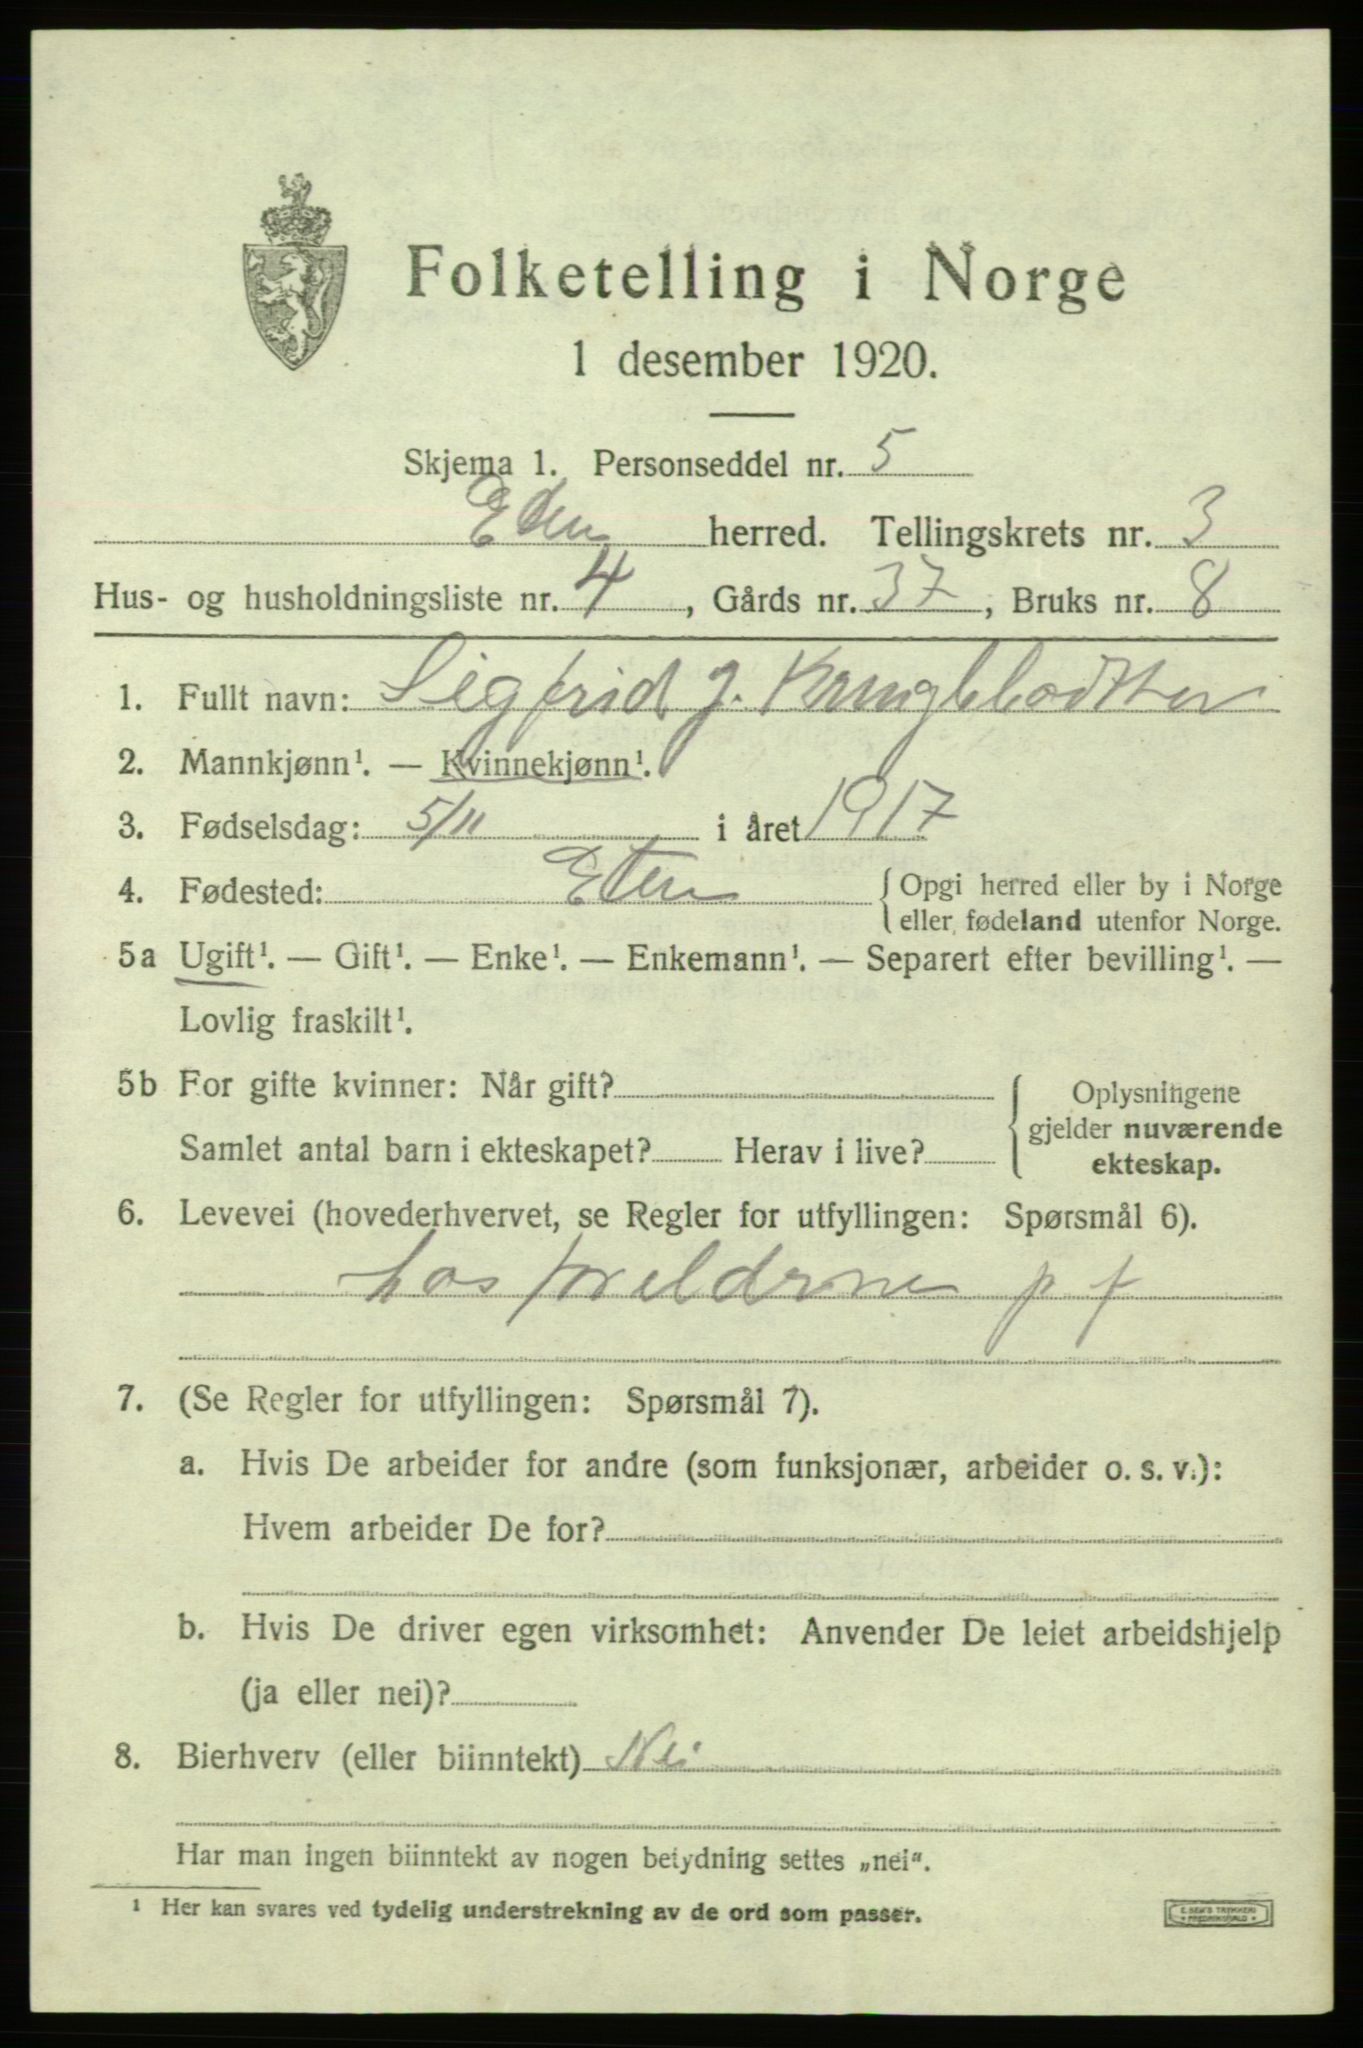 Folketelling i Norge
1 desember 1920.
Skjema 1. Personseddel nr. 5
herred. Tellingskrets nr. 3
Hus- og husholdningsliste nr. 4, Gårds nr. 37, Bruks nr. 8
1. Fullt navn: Sigfrid J.
2. Mannkjønn¹. — Kvinnekjønn¹.
3. Fødselsdag: 5/11 i året 1917
4. Fødested: { Opgi herred eller by i Norge
eller fødeland utenfor Norge.
5a Ugift¹. — Gift¹. — Enke¹. — Enkemann¹. — Separert efter bevilling¹. —
Lovlig fraskilt¹.
5b For gifte kvinner: Når gift? { Oplysningene
gjelder nuværende
Samlet antal barn i ekteskapet? Herav i live?
ekteskap.
6. Levevei (hovederhvervet, se Regler for utfyllingen: Spørsmål 6).
hos forældrene p f
7. (Se Regler for utfyllingen: Spørsmål 7).
a. Hvis De arbeider for andre (som funksjonær, arbeider o. s. v.):
Hvem arbeider De for?
b. Hvis De driver egen virksomhet: Anvender De leiet arbeidshjelp
(ja eller nei)?
8. Bierhverv (eller biinntekt) Nei
Har man ingen biinntekt av nogen betydning settes „nei".
¹ Her kan svares ved tydelig understrekning av de ord som passer.